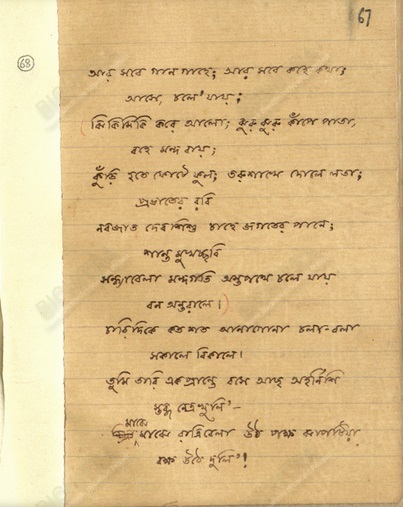 67
68
আর সবে গান গাহে; আর সবে কহে কথা;
আসে, চলে' যায়;
ঝিকিমিকি করে আলো; ঝুরু ঝুরু কাঁপে পাতা,
বহে মন্দ বায়;
কুঁড়ি হতে ফোটে ফুল; তরুশাখে দোলে লতা;
প্রভাতের রবি
নবজাত দেবশিশু চাহে জগতের পানে;
শান্ত মুখচ্ছবি
সন্ধ্যাবেলা মন্দগতি অস্তপথে চলে যায়
বন অন্তরালে।
চারিদিকে কত শত আনাগোনা চলা-বলা
সকালে বিকালে।
তুমি তারি একপ্রান্তে বসে আছ অহর্নিশি
স্তব্ধ নেত্র তুলি'–
মাঝে
মাঝে রাত্রিবেলা উঠে পক্ষ ঝাপটিয়া
বক্ষ উঠে দুলি'!